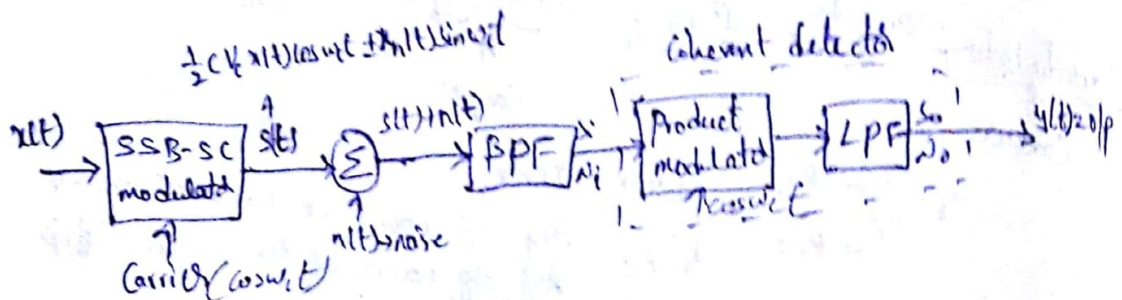 ½ C Vc x(t) cosωct ± xh(t) sinωct
Coherent detector
x(t)
SSB-SC
modulator
s(t)
Σ
s(t)+n(t)
BPF
Si
Ni
Product
modulator
LPF
So
No
y(t)=o/p
cosωct
n(t)→noise
Carrier(cosωct)